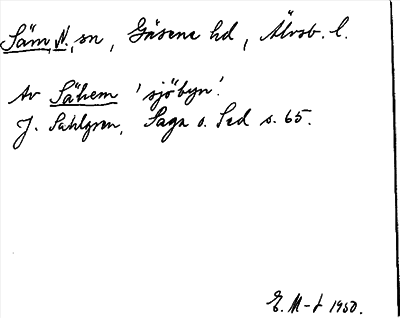 Säm, N., sn, Gäsene hd, Älvsb. l.
Av Sähem 'sjöbyn'.
J. Sahlgren, Saga o. Sed s. 65.
E. M-t 1950.